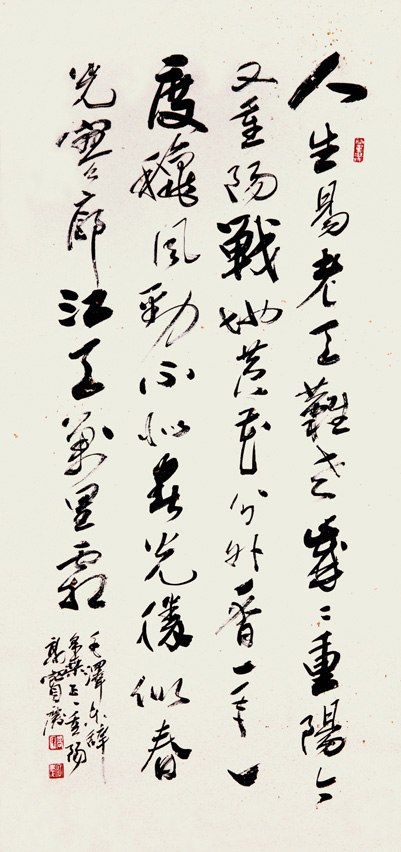 人生易老天難老歲〻重陽今
又重陽戰地黃花分外香一年一
度穐風勁不似春光勝似春
光寥廓江天萬里霜
毛澤东辞
采桑子重陽